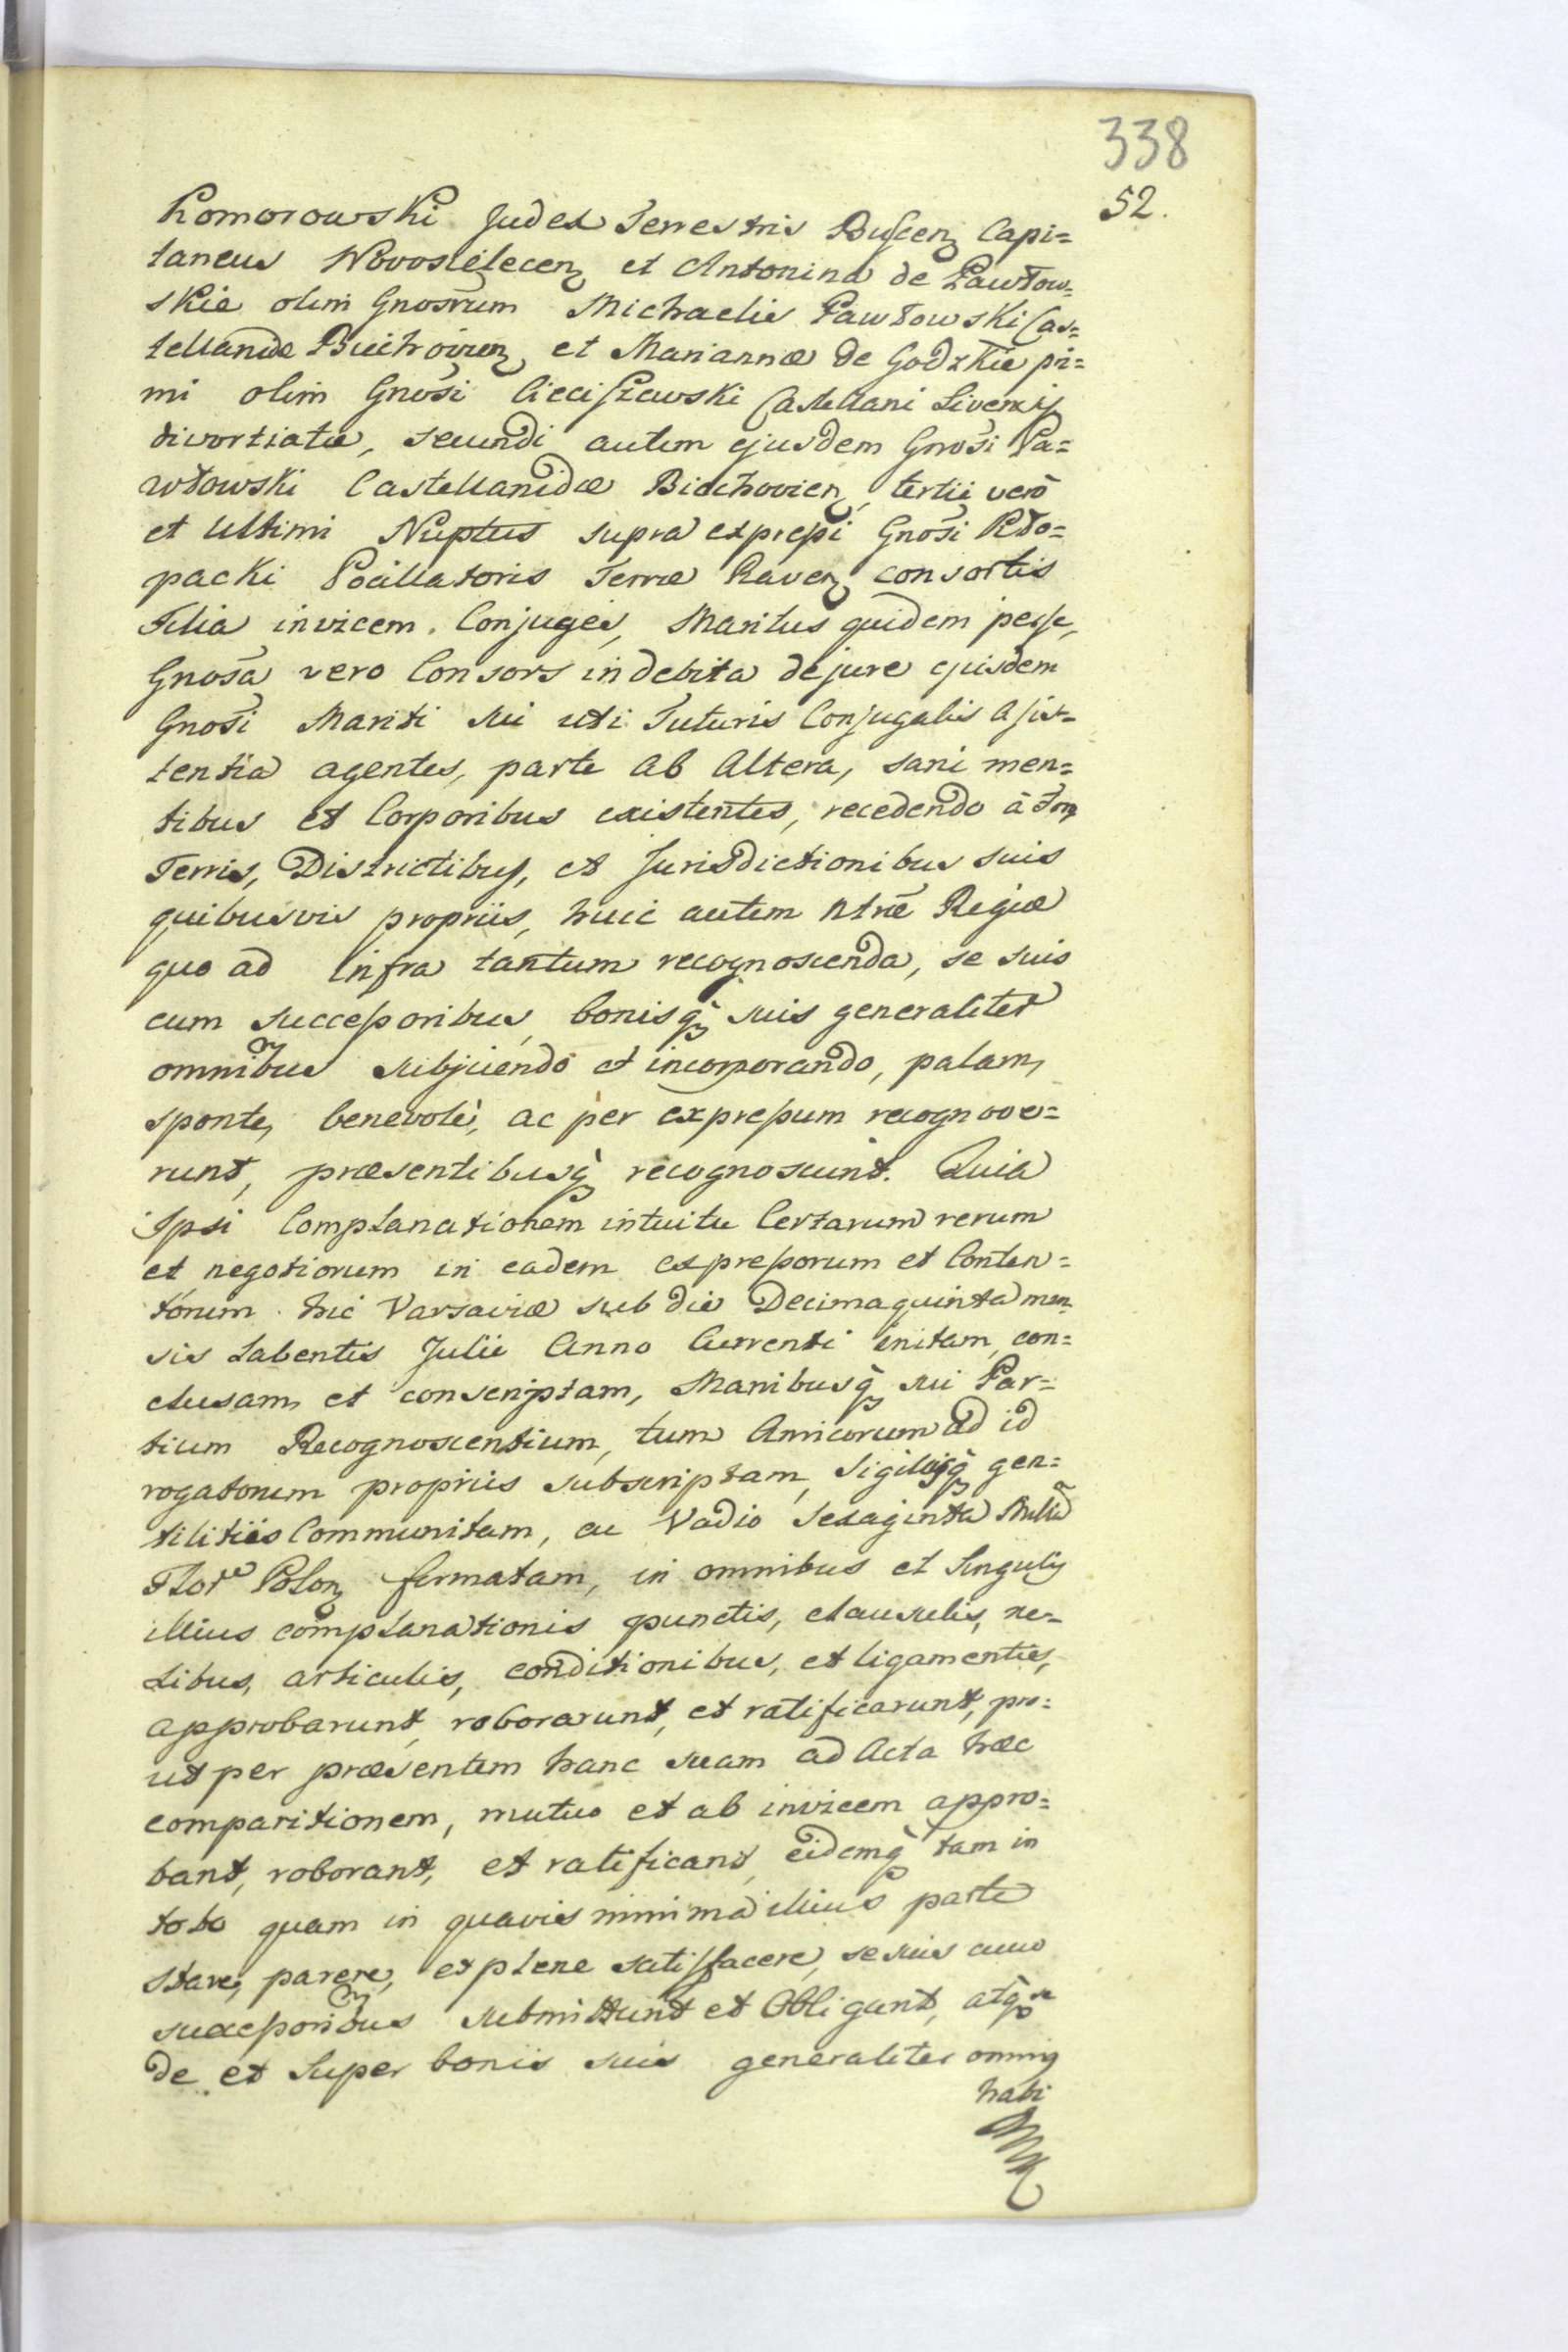 338
52.
Komorowski Judex Terrestris Buscen Capi=
taneus Novosielecen et Antonina de Pawłow=
skie olim Gnosrum Michaelis Pawłowski Cas=
tellanidæ Biechovien et Mariannæ de Godzkie pri=
mi olim Gnosi Cieciszewski Castellani Livensis
divortiatæ, secundi autem ejusdem Gnosi Pa=
włowski Castellanidæ Biechovien, tertii verò
et Ultimi Nuptus supra expressi Gnosi Kło=
packi Pocillatoris Terræ Raven consortis
Filia invicem Conjuges, Maritus quidem per se,
Gnosa vero Consors in debita de jure ejusdem
Gnosi Mariti sui uti Tutoris Conjugalis Assis=
tentia agentes, parte ab Altera, sani men=
tibus et Corporibus existentes, recedendo à
Terris, Districtibus, et Jurisdictionibus suis
quibusvis propriis, huic autem Ntræ Regiæ
quo ad infra tantum recognoscenda, se suis
cum successoribus bonisq suis generaliter
omnibus subjiciendo et incorporando, palam,
sponte, benevolè, ac per expressum recognove=
runt, præsentibusq recognoscunt. Quia
Ipsi Complanationem intuitu Certarum rerum
et negotiorum in eadem expressorum et Conten=
torum hic Varsaviæ sub die Decima quinta men
sis Labentis Julii Anno Currenti initam, con=
clusam et conscriptam, Manibusq sui Par=
tium Recognoscentium, tum Amicorum ad id
rogatorum propriis subscriptam, Sigilisq gen=
tilitiis Communitam, ac Vadio Sexaginta Millia
Flor Polon firmatam, in omnibus et Singulis
illius complanationis punctis, clausulis, ne=
xibus, articulis, conditionibus, et ligamentis,
approbarunt, roborarunt, et ratificarunt, pro=
ut per præsentem hanc suam ad Acta hæc
comparitionem, mutuo et ab invicem appro=
bant, roborant, et ratificant, eidemq tam in
toto quam in quavis minima illius parte
stare, parere, et plene satisfacere, se suis cum
successoribus submittunt et Obligant, atq
de et Super bonis suis generaliter omnis
habi